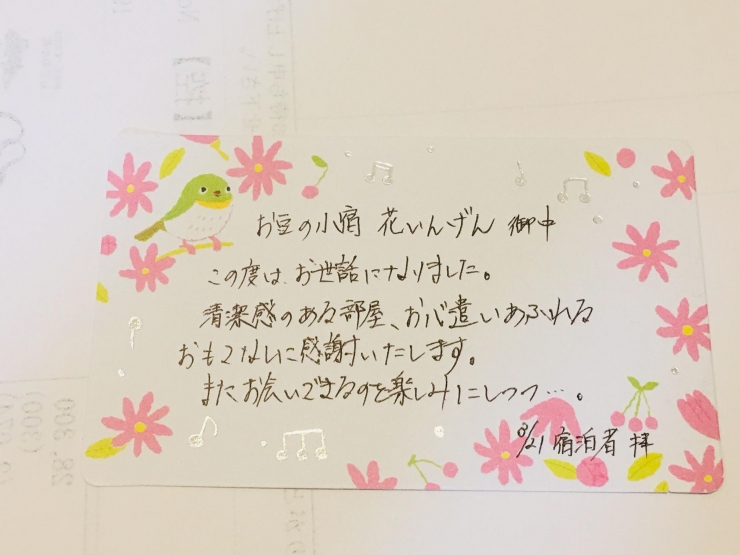 お豆の小宿 花いんげん 御中
この度は、お世話になりました。
清潔感のある部屋、お心遣いあふれる
おもてなしに感謝いたします。
またお会いできるのを楽しみにしつつ…。
8/21 宿泊者 拝
28,300
(300)